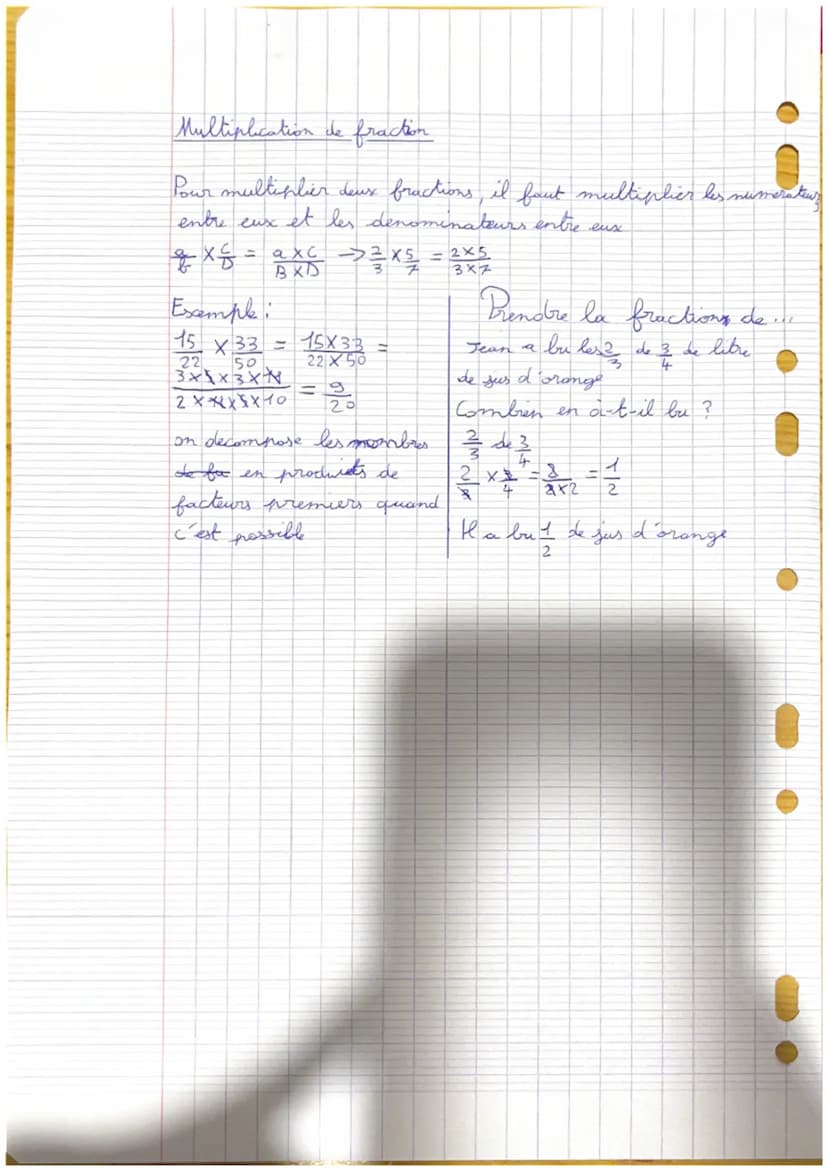 Multiplication de fraction
Pour multiplier deux fractions, il faut multiplier les numerateurs
entre eux et les denominateurs entre eux
a/b × C/D = a×C/B×D → 2/3 × 5/7 = 2×5/3×7
Exemple :
15/22 × 33/50 = 15×33/22×50 =
3×5×3×11/2×11×5×10 = 9/20
on decompose les nombres
de fa en produits de
facteurs premiers quand
c'est possible
Prendre la fraction de ...
Jean a bu les 2/3 de 3/4 de litre
de jus d'orange
Combien en a-t-il bu ?
2/3 de 3/4
2/3 × 3/4 = 2/2×2 = 1/2
Il a bu 1/2 de jus d'orange